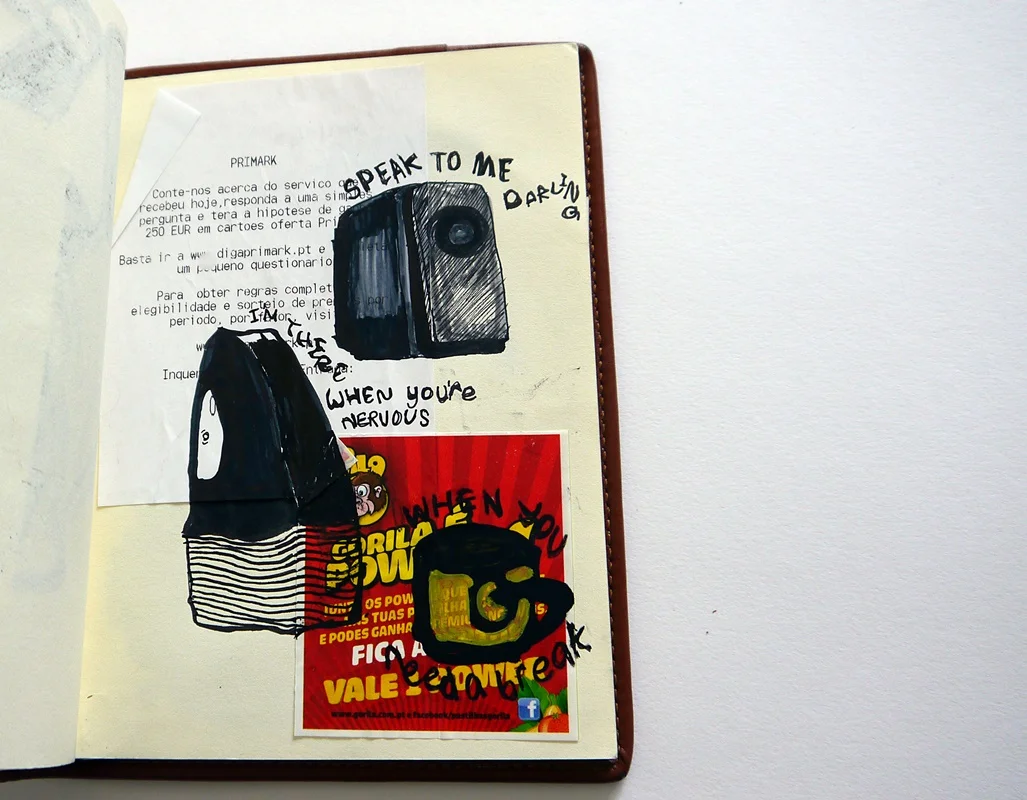 PRIMARK
Conte-nos acerca do servico
recebeu hoje,responda a uma simples
pergunta e tera a hipotese de
250 EUR em cartoes oferta
Basta ir a digaprimark.pt e
um pequeno questionario
Para obter regras
elegibilidade e sorteio de por
periodo, por favor,
SPEAK TO ME
DARLING
I'M THERE
WHEN you're
NERVOUS
WHEN YOU
Need a break
GORILA
POW
JUNTA OS
TUAS
E PODES
FICA A
VALE 1
www.gorila.com.pt e facebook/pastilhasgorila
f